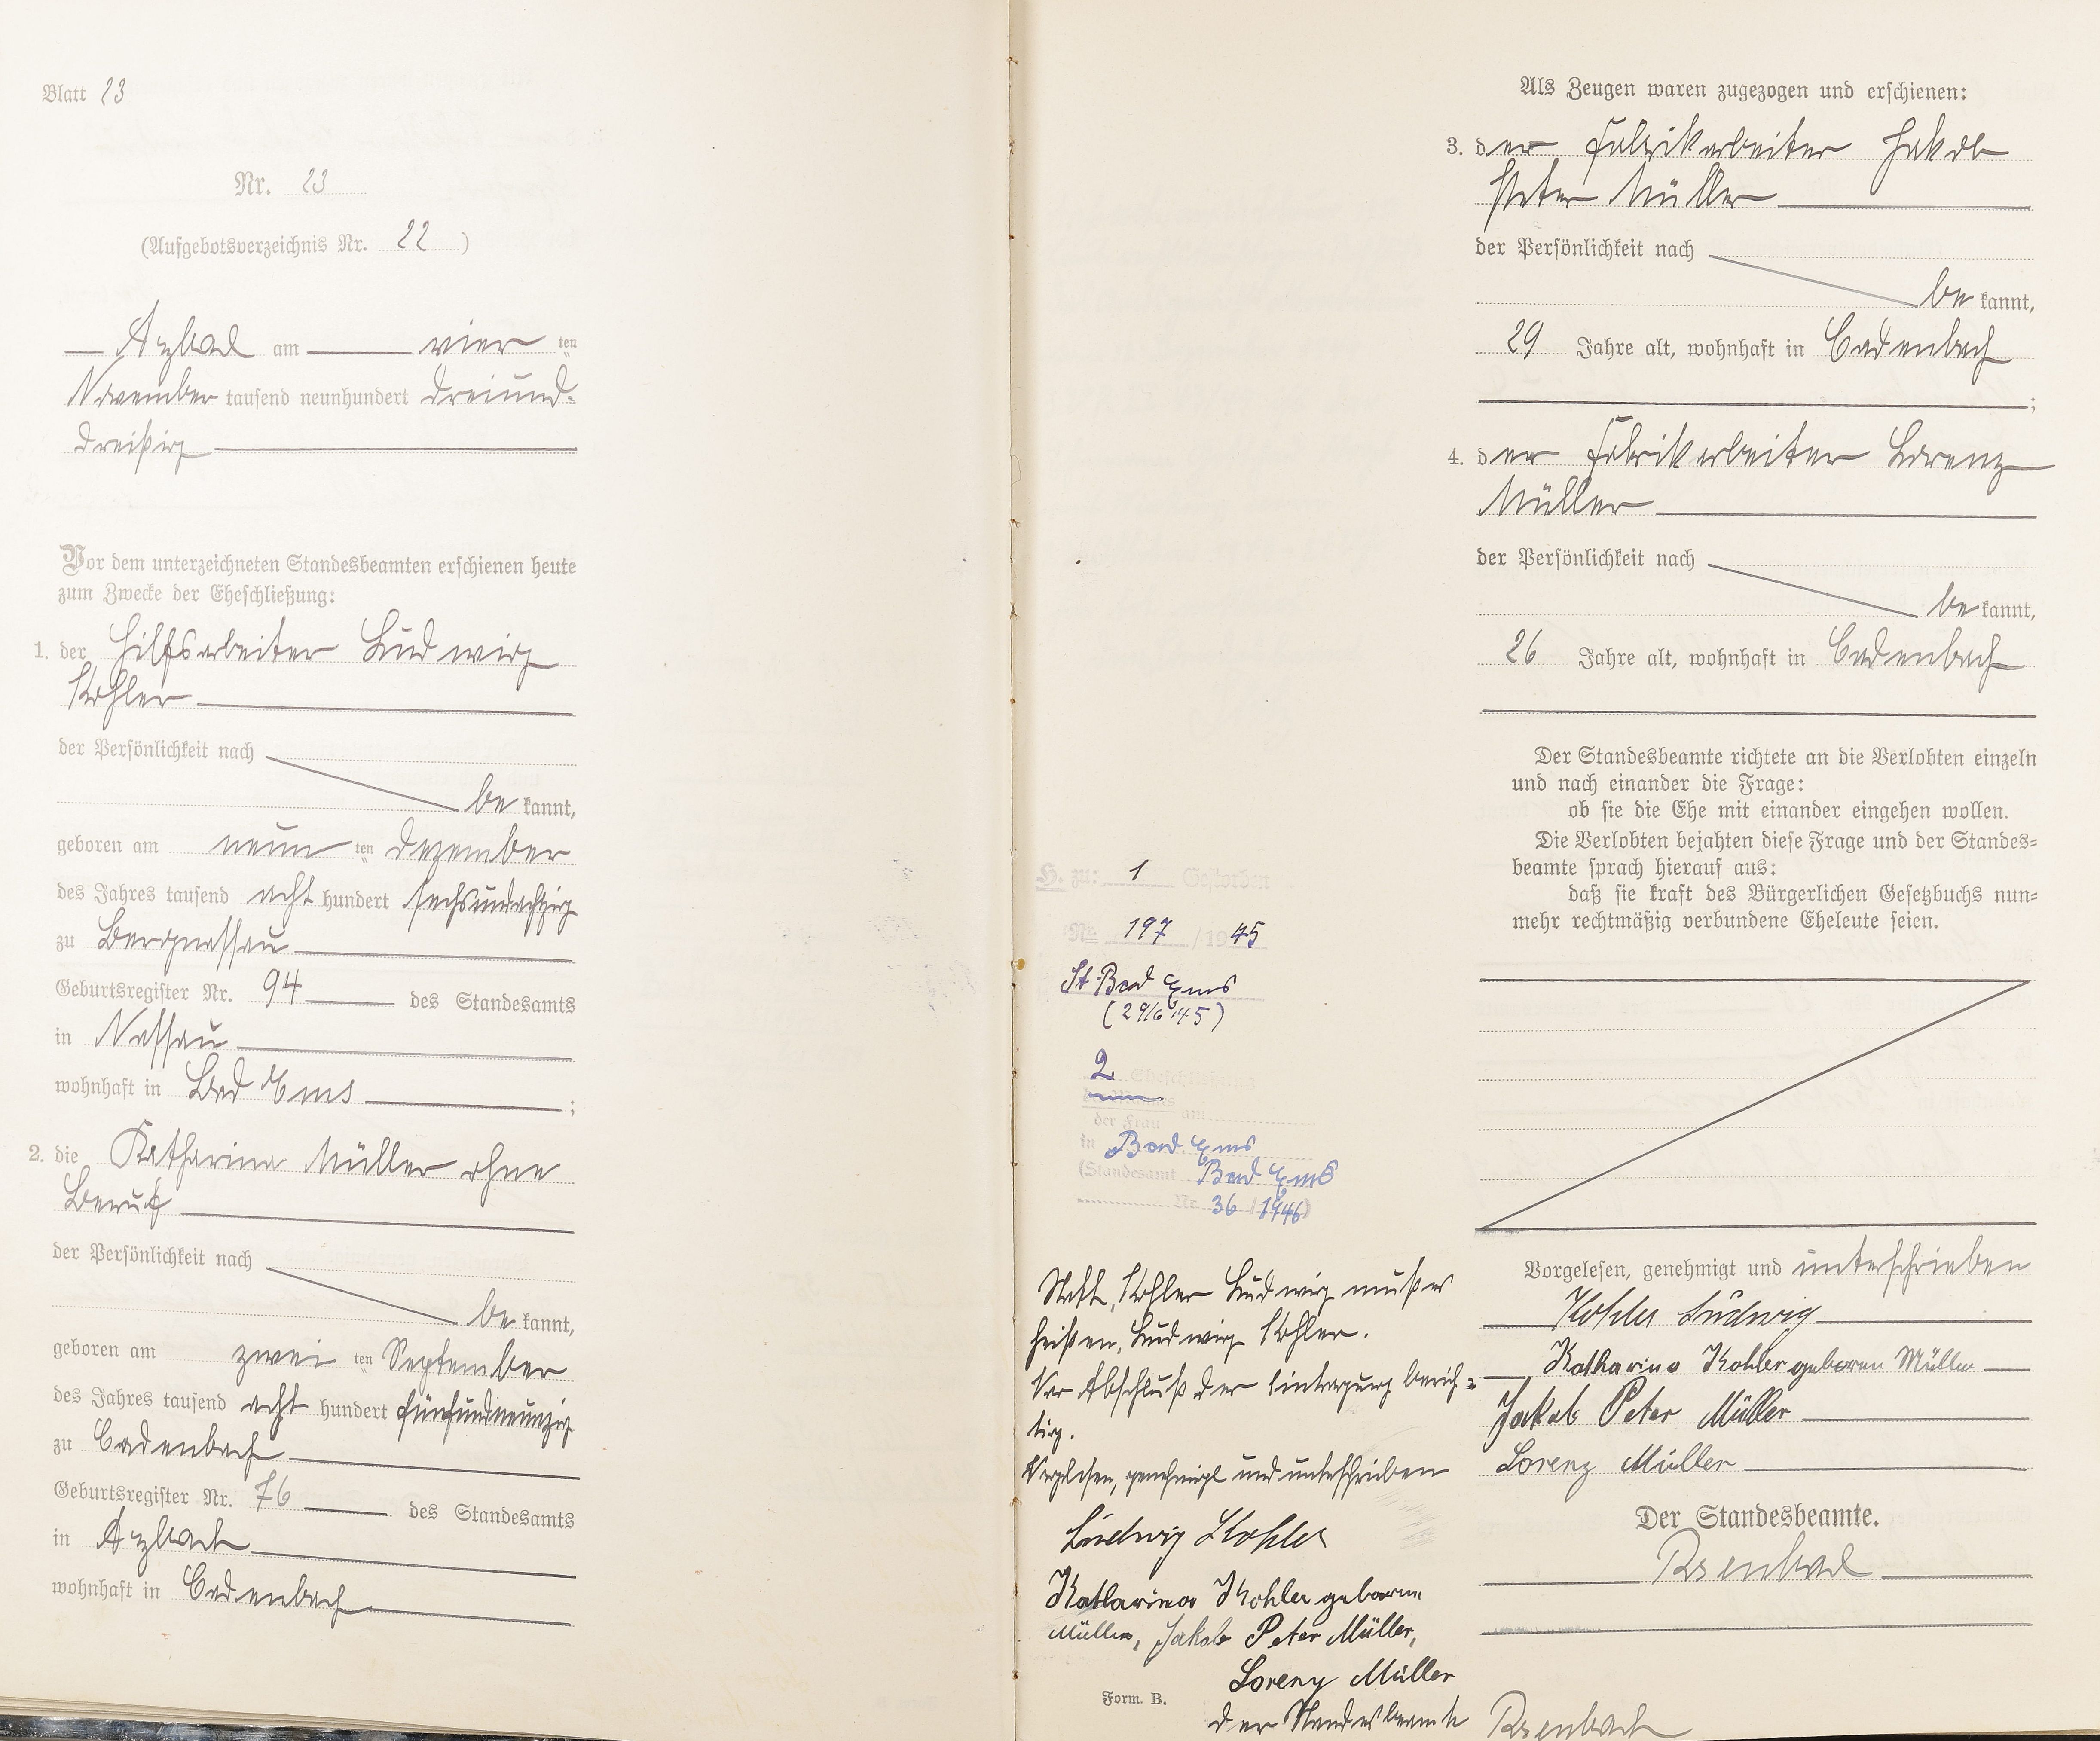 Blatt 23
Nr. 23
(Aufgebotsverzeichnis Nr. 22)
Arzbach am vier ten
November tausend neunhundert dreiund-
dreißig
Vor dem unterzeichneten Standesbeamten erschienen heute
zum Zwecke der Eheschließung:
1. der Hilfsarbeiter Ludwig
Kohler
der Persönlichkeit nach
be kannt,
geboren am neun ten Dezember
des Jahres tausend acht hundert sechsundachtzig
zu Bergnassau
Geburtsregister Nr. 94 des Standesamts
in Nassau
wohnhaft in Bad Ems ;
2. die Katharina Müller ohne
Beruf
der Persönlichkeit nach
be kannt,
geboren am zwei ten September
des Jahres tausend acht hundert fünfundneunzig
zu Cadenbach
Geburtsregister Nr. 76 des Standesamts
in Arzbach
wohnhaft in Cadenbach
H. zu: 1 Gestorben
Nr. 197 / 1945
St. Bad Ems
(29/6 45)
2 Eheschließung
der Frau am
in Bad Ems
(Standesamt Bad Ems
Nr. 36 / 1946)
Statt, Kohler Ludwig muß es
heißen, Ludwig Kohler.
Vor Abschluß der Eintragung berich-
tigt.
Vorgelesen, genehmigt und unterschrieben
Ludwig Kohler
Katharina Kohler geboren
Müller, Jakob Peter Müller,
Lorenz Müller
Der Standesbeamte Rosenbach
Form. B.
Als Zeugen waren zugezogen und erschienen:
3. der Fabrikarbeiter Jakob
Peter Müller
der Persönlichkeit nach
be kannt,
29 Jahre alt, wohnhaft in Cadenbach
;
4. der Fabrikarbeiter Lorenz
Müller
der Persönlichkeit nach
be kannt,
26 Jahre alt, wohnhaft in Cadenbach
Der Standesbeamte richtete an die Verlobten einzeln
und nach einander die Frage:
ob sie die Ehe mit einander eingehen wollen.
Die Verlobten bejahten diese Frage und der Standes-
beamte sprach hierauf aus:
daß sie kraft des Bürgerlichen Gesetzbuchs nun-
mehr rechtmäßig verbundene Eheleute seien.
Vorgelesen, genehmigt und unterschrieben
Kohler Ludwig
Katharina Kohler geboren Müller
Jakob Peter Müller
Lorenz Müller
Der Standesbeamte.
Rosenbach